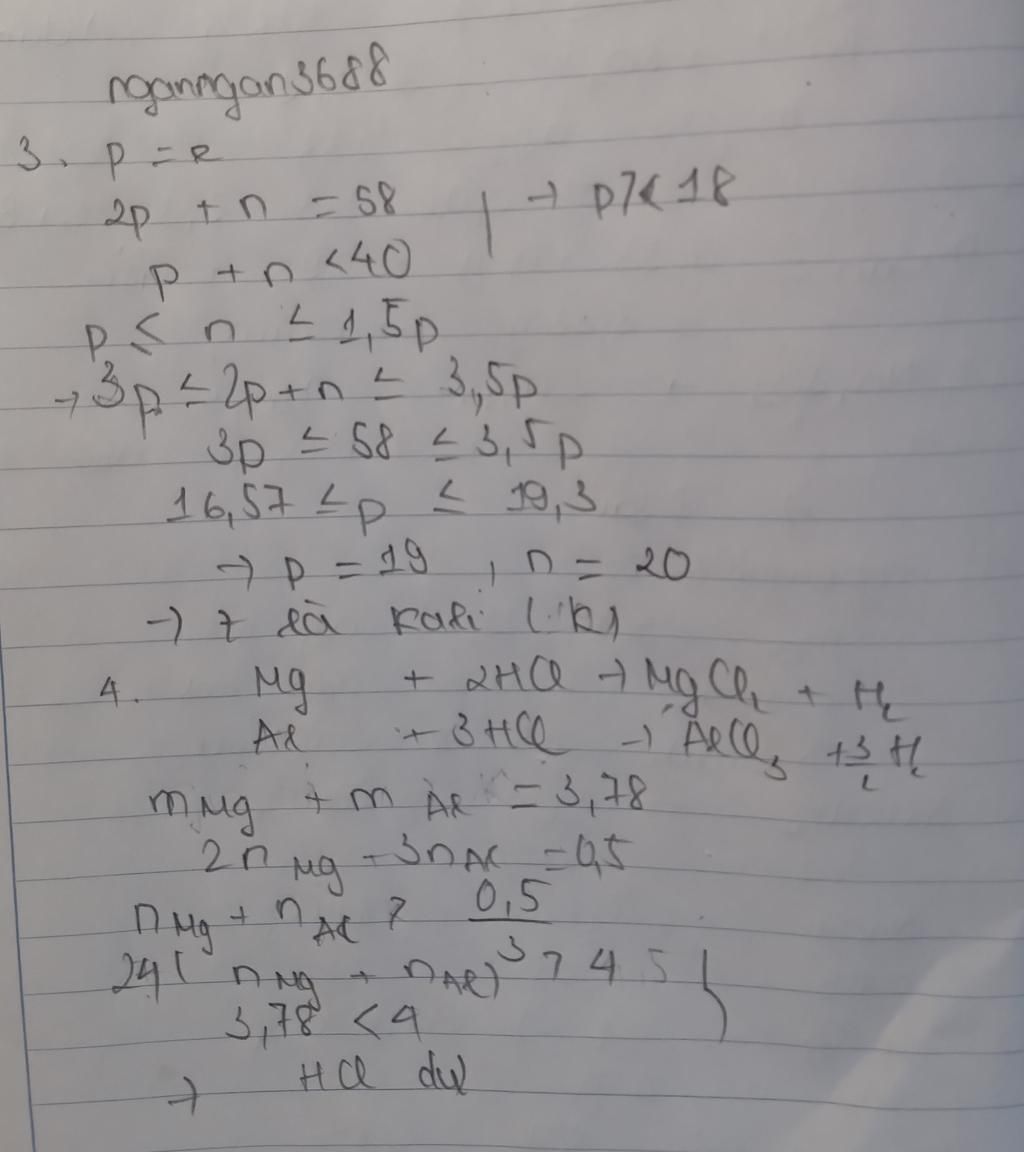 nganngan3688
3. p = e
2p + n = 58 | → p > 18
p + n < 40
p ≤ n ≤ 1,5p
→ 3p ≤ 2p + n ≤ 3,5p
3p ≤ 58 ≤ 3,5p
16,57 ≤ p ≤ 19,3
→ p = 19 , n = 20
→ z là kali (K)
4. Mg + 2HCl → MgCl2 + H2
Al + 3HCl → AlCl3 + 3/2 H2
mMg + mAl = 3,78
2nMg + 3nAl = 0,5
nMg + nAl > 0,5/3
24(nMg + nAl) > 4
3,78 < 4
→ HCl dư